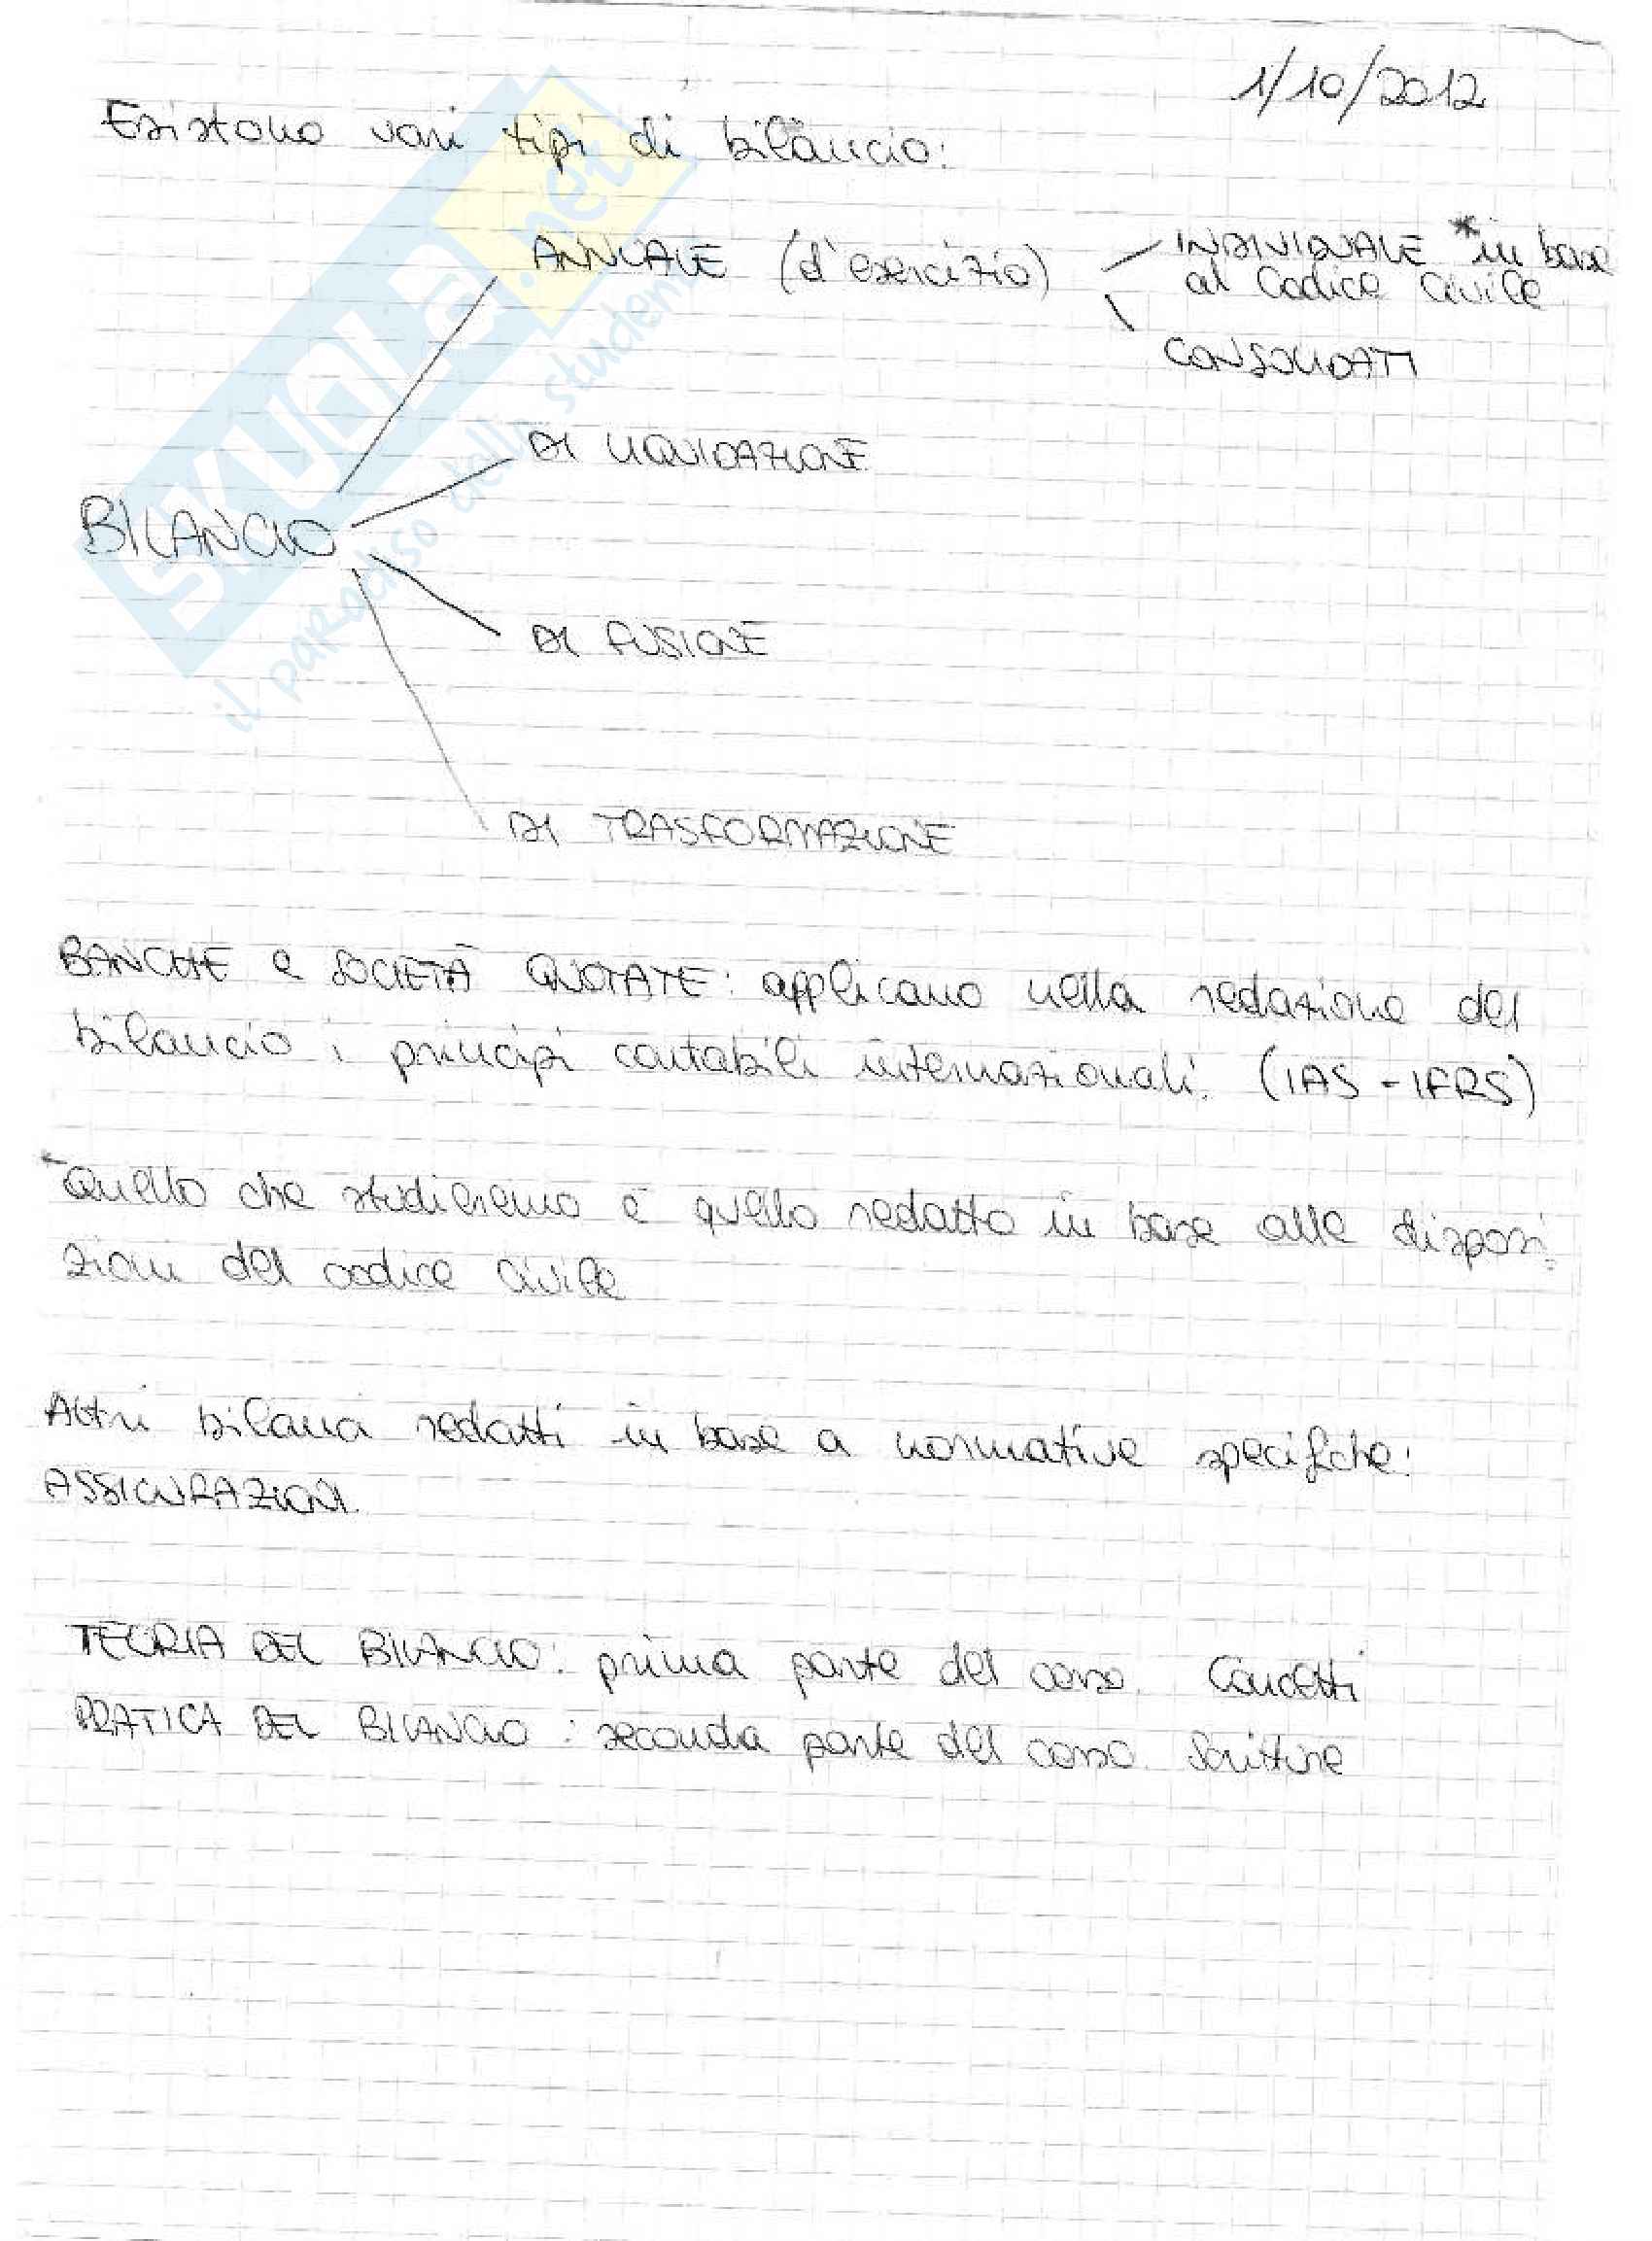 1/10/2012
Esistono vari tipi di bilancio:
ANNUALE (d'esercizio)
INDIVIDUALE *in base
al Codice Civile
CONSOLIDATI
DI LIQUIDAZIONE
BILANCIO
DI FUSIONE
DI TRASFORMAZIONE
BANCHE e SOCIETÀ QUOTATE: applicano nella redazione del
bilancio i principi contabili internazionali. (IAS - IFRS)
*Quello che studieremo è quello redatto in base alle disposi
zioni del codice civile
Altri bilanci redatti in base a normative specifiche:
ASSICURAZIONI.
TEORIA DEL BILANCIO: prima parte del corso. Concetti
PRATICA DEL BILANCIO: seconda parte del corso. Scritture
SKUOLA.net
il paradiso dello studente